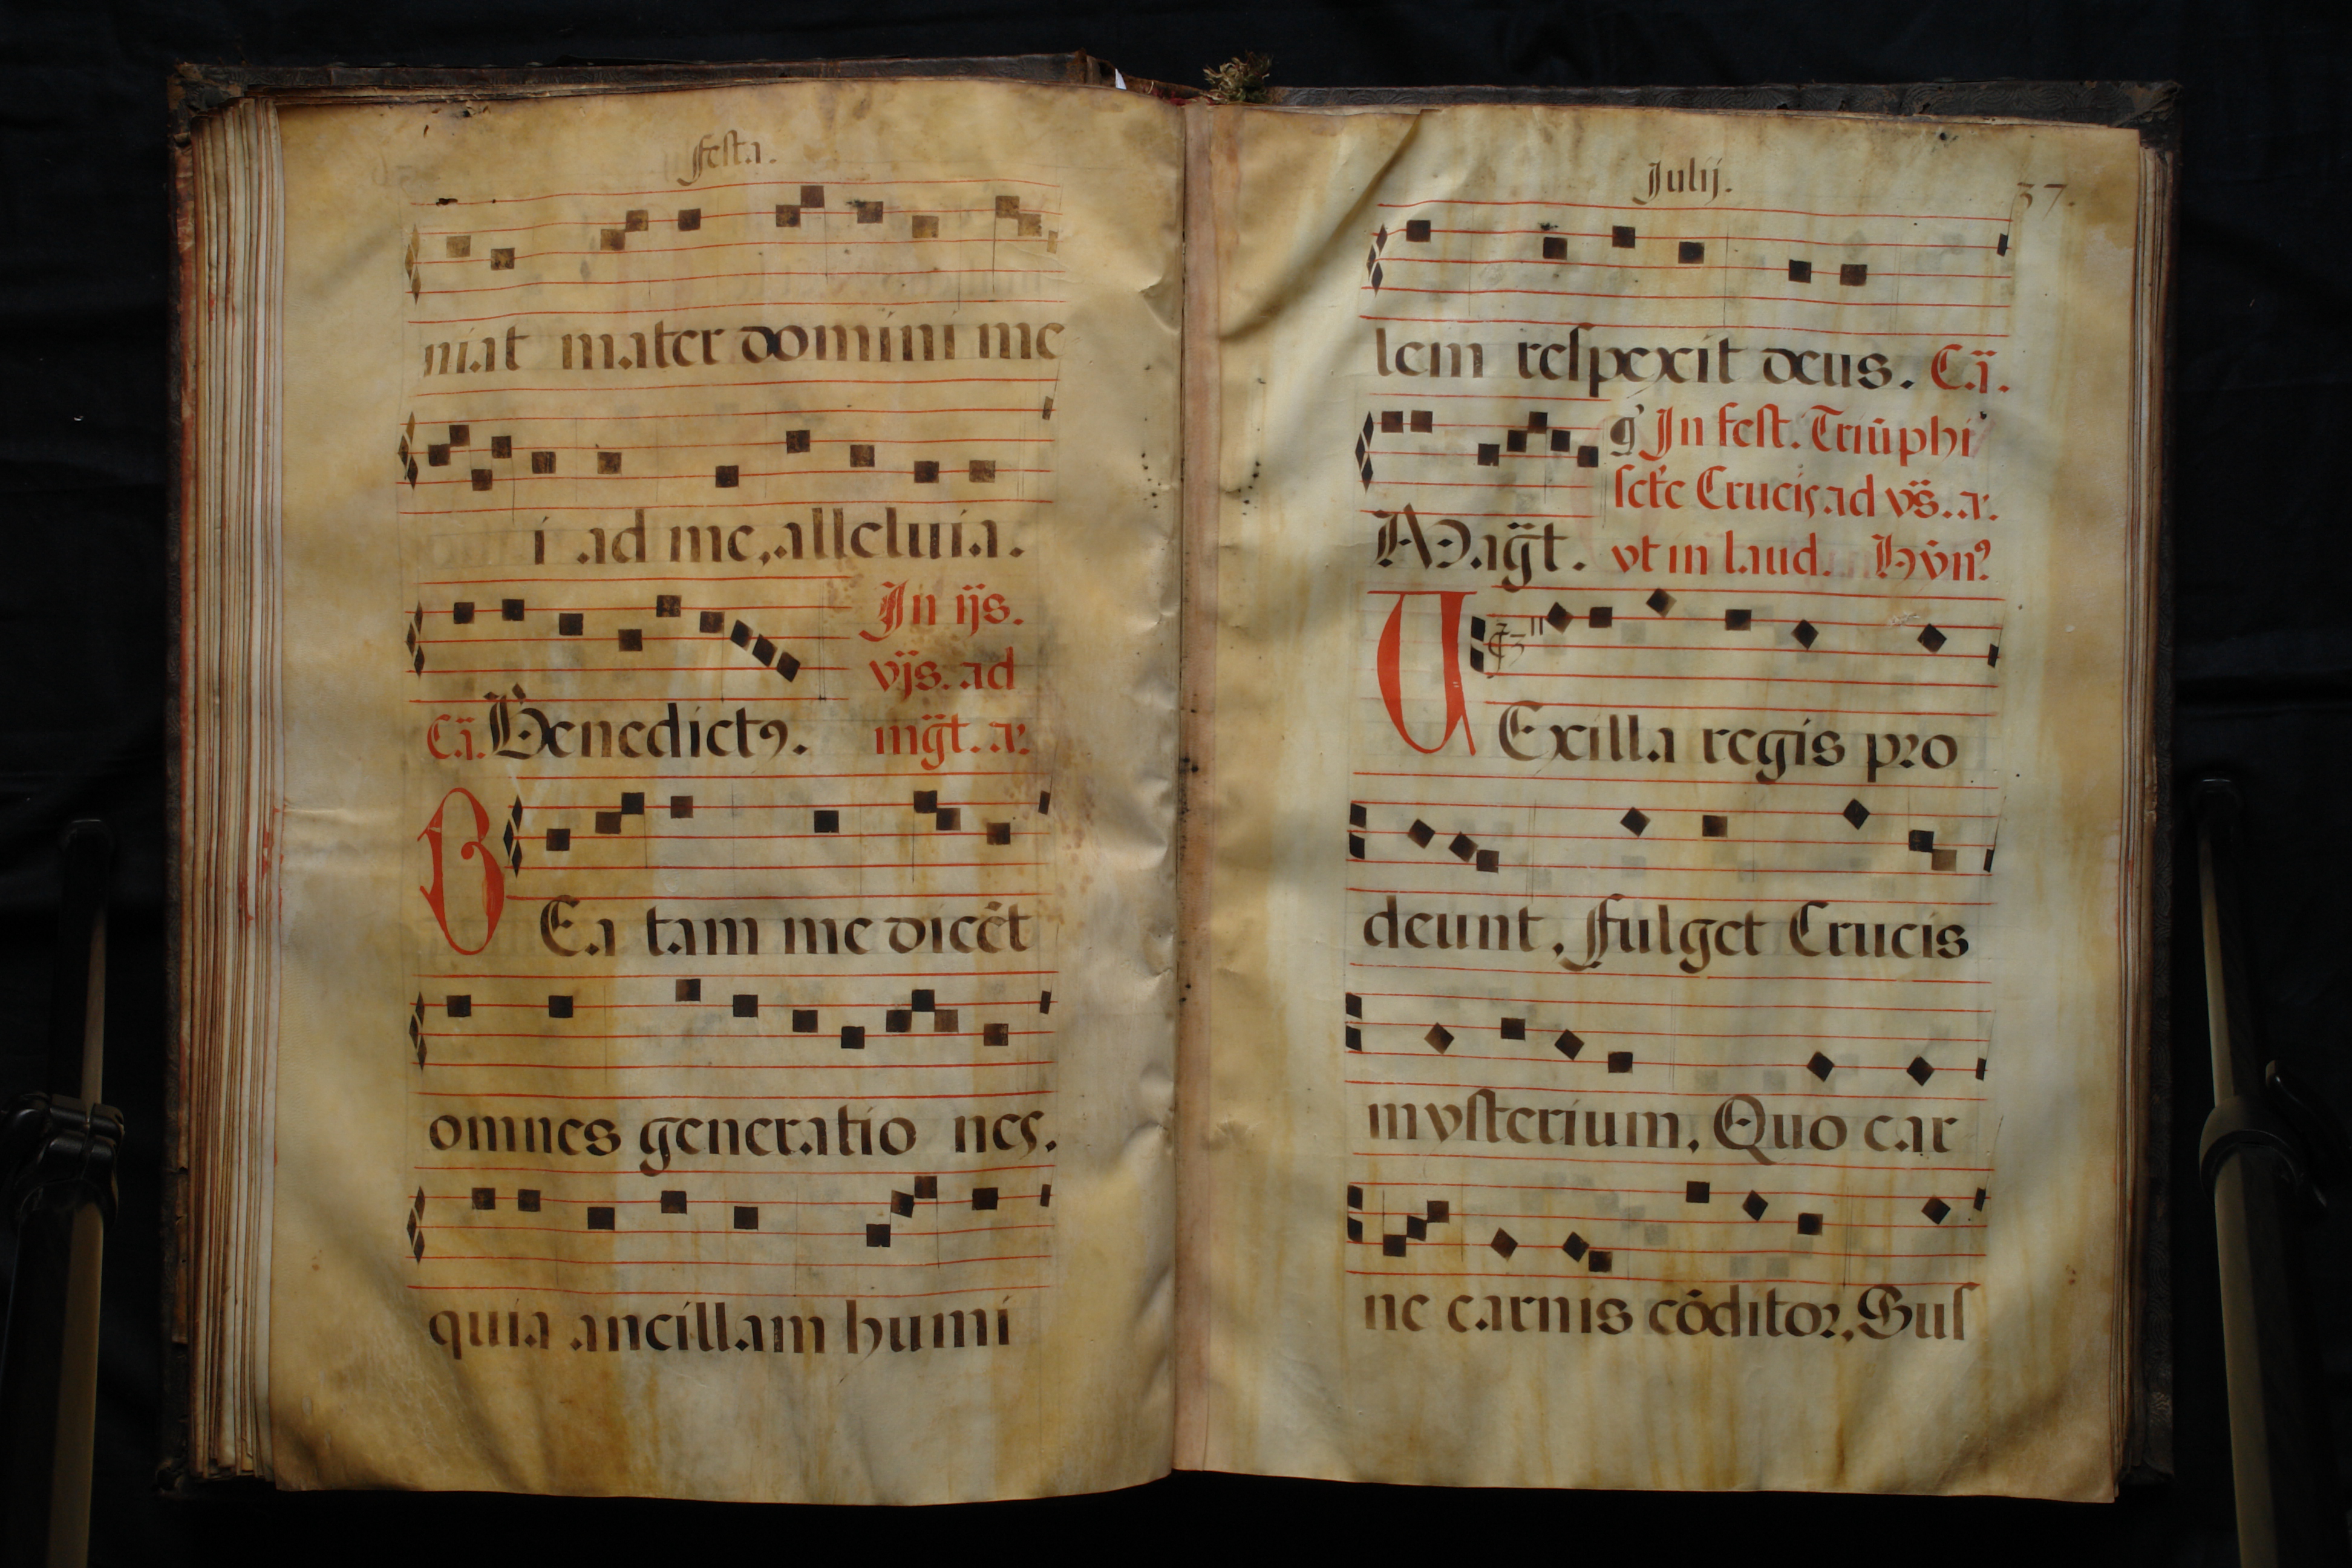 Festa.
niat mater domini me
i ad me, alleluia.
In ijs.
vijs. ad
Ca. Benedictꝯ. mgt. a.
BEa tam me dicẽt
omnes generatio nes.
quia ancillam humi
Julij. 37.
lem respexit deus. Ca.
gͦ In fest. Triũphi
scte Crucis ad vs. a.
Magt. vt in laud. Hyn?
VExilla regis pro
deunt, Fulget Crucis
mysterium, Quo car
ne carnis cõditor, Sus